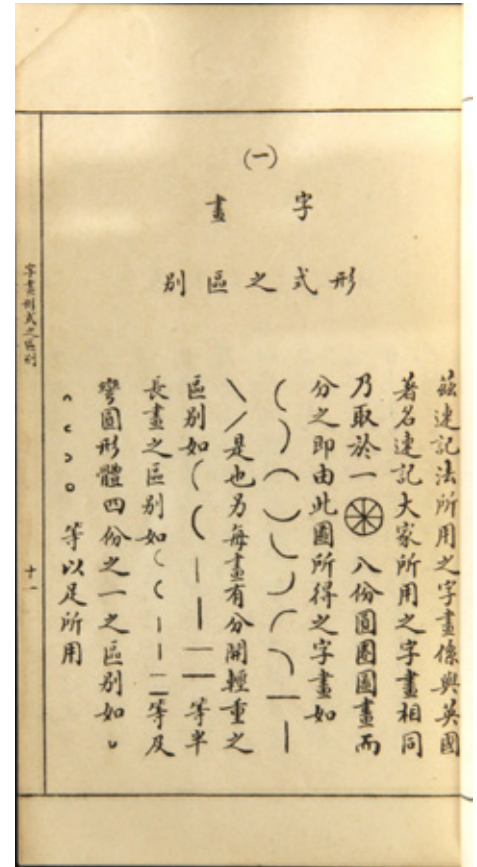 (一)
字畫
形式之區別
茲速記法所用之字畫係與英國
著名速記大家所用之字畫相同
乃取於一 八份圓圈圖畫而
分之即由此圖所得之字畫如
是也另每畫有分開輕重之
區別如 等半
長畫之區別如 等及
彎圓形體四份之一之區別如
等以足所用
字畫形式之區別
十一